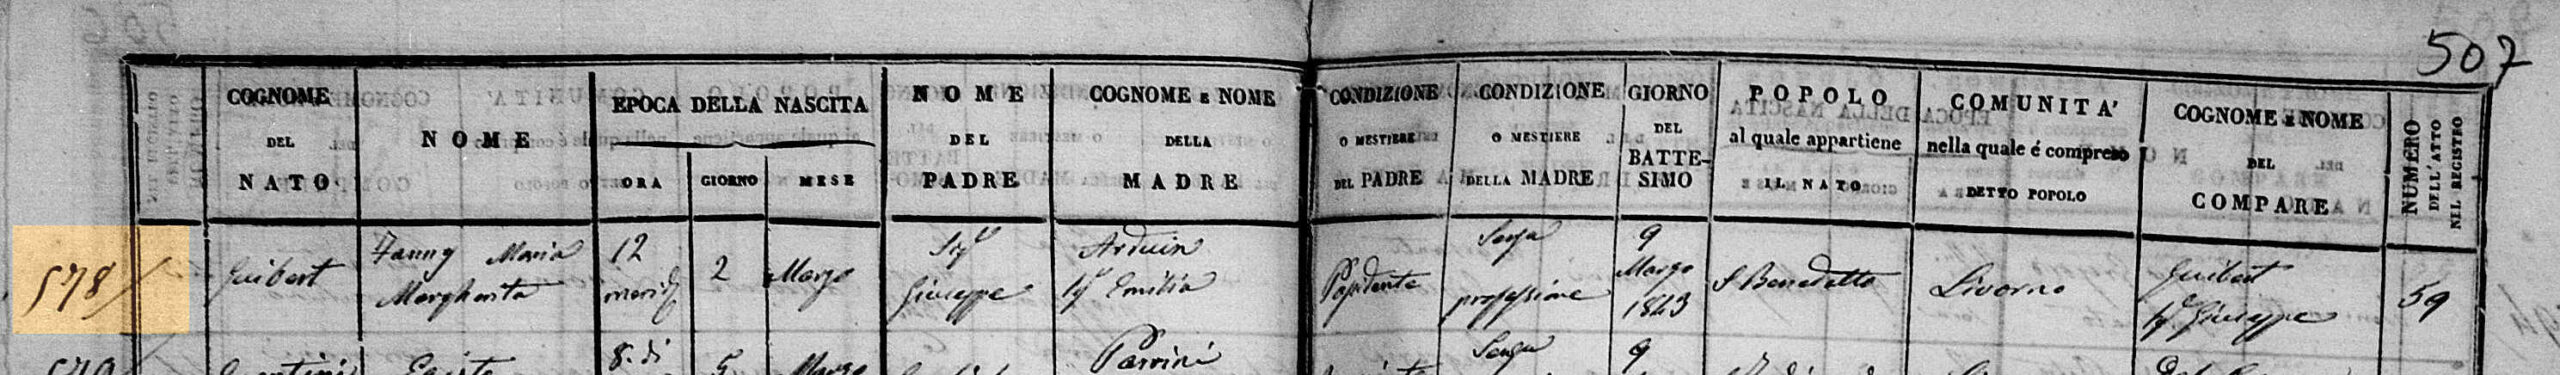 507
COGNOME
DEL
NATO
NOME
EPOCA DELLA NASCITA
ORA
GIORNO
MESE
NOME
DEL
PADRE
COGNOME E NOME
DELLA
MADRE
CONDIZIONE
O MESTIERE
DEL PADRE
CONDIZIONE
O MESTIERE
DELLA MADRE
GIORNO
DEL
BATTE-
SIMO
POPOLO
al quale appartiene
IL NATO
COMUNITA'
nella quale é compreso
DETTO POPOLO
COGNOME E NOME
DEL
COMPARE
NUMERO
DELL'ATTO
NEL REGISTRO
578
Guibert
Fanny Maria
Margherita
12
2
Marzo
Giuseppe
Arduin
Emilia
Possidente
Senza
professione
9
Marzo
1843
S Benedetto
Livorno
Guibert
Giuseppe
59
579
8. di
5
Marzo
Parrini
Senza
9